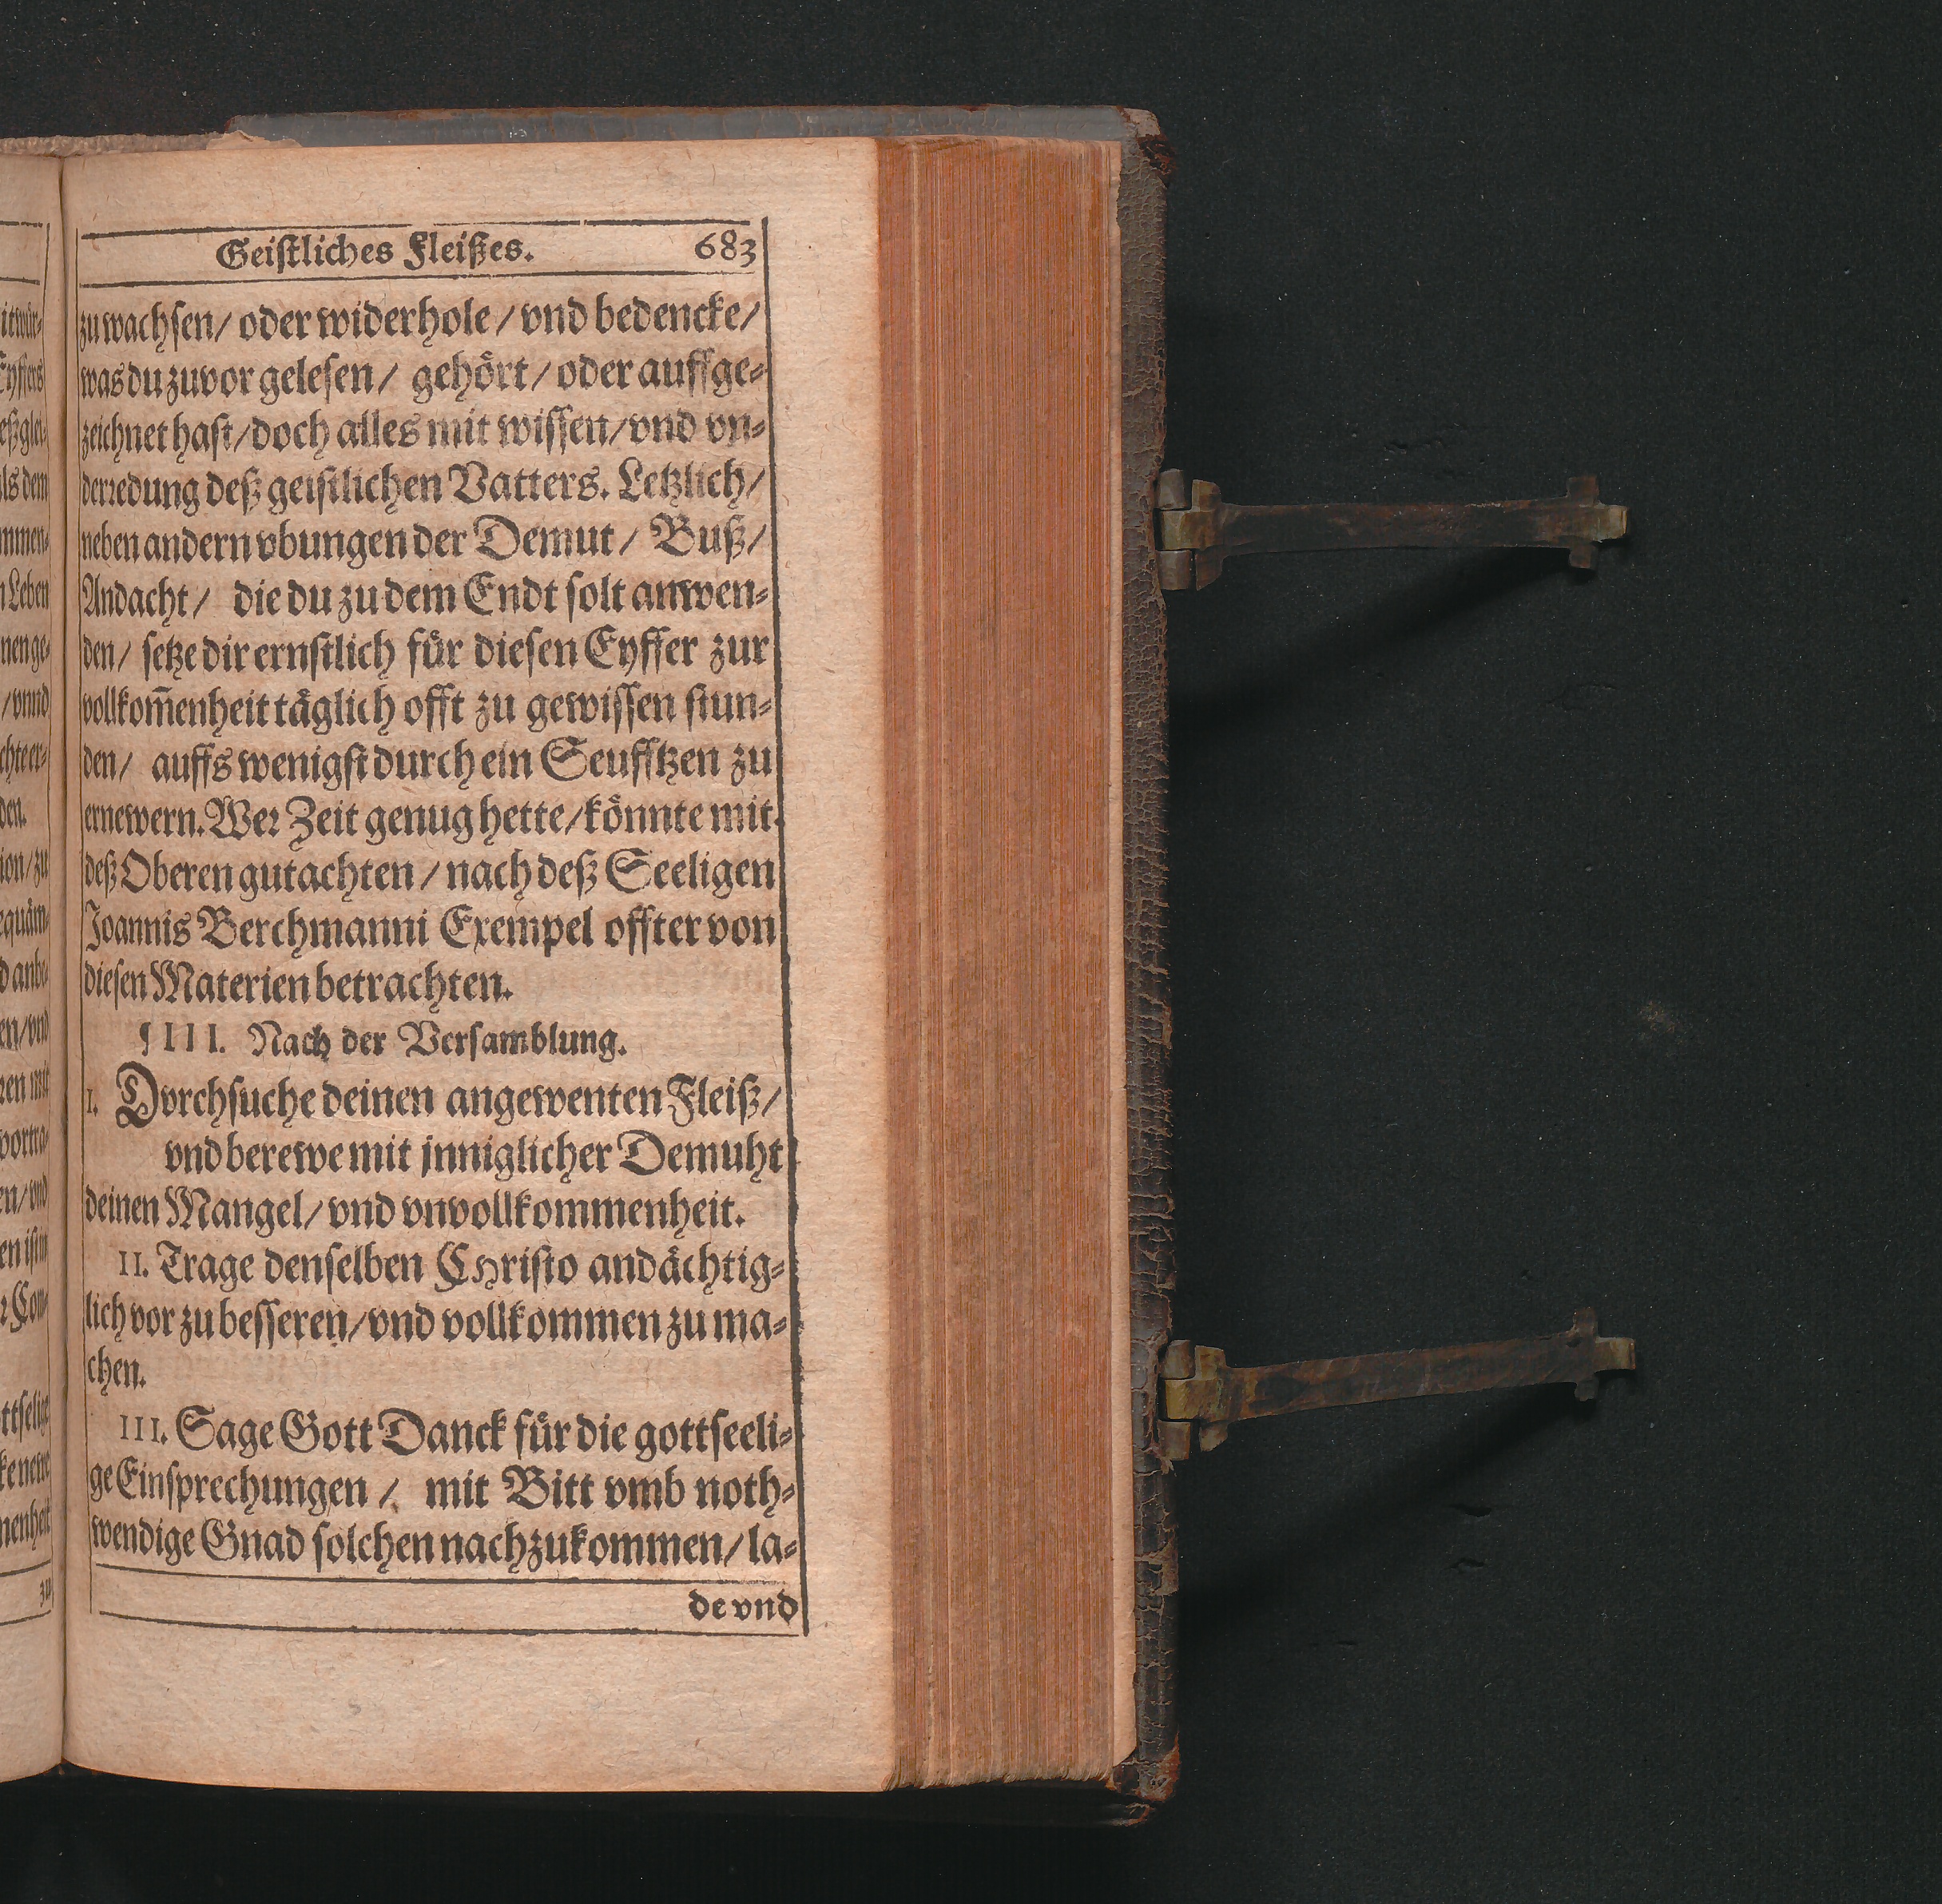 Geistliches Fleißes. 683
zu wachsen/ oder widerhole/ vnd bedencke/
was du zuvor gelesen/ gehört/ oder auffge-
zeichnet hast/ doch alles mit wissen/ vnd vn-
derredung deß geistlichen Vatters. Letzlich/
neben andern vbungen der Demut/ Buß/
Andacht/ die du zu dem Endt solt anwen-
den/ setze dir ernstlich für diesen Eyffer zur
vollkom̃enheit täglich offt zu gewissen stun-
den/ auffs wenigst durch ein Seufftzen zu
ernewern. Wer Zeit genug hette/ könnte mit
deß Oberen gutachten/ nach deß Seeligen
Joannis Berchmanni Exempel offter von
diesen Materien betrachten.
¶ III. Nach der Versamblung.
I. Dvrchsuche deinen angewenten Fleiß/
vnd berewe mit jnniglicher Demuht
deinen Mangel/ vnd vnvollkommenheit.
II. Trage denselben CHristo andächtig-
lich vor zu besseren/ vnd vollkommen zu ma-
chen.
III. Sage Gott Danck für die gottseeli-
ge Einsprechungen/ mit Bitt vmb noth-
wendige Gnad solchen nachzukommen/ la-
de vnd